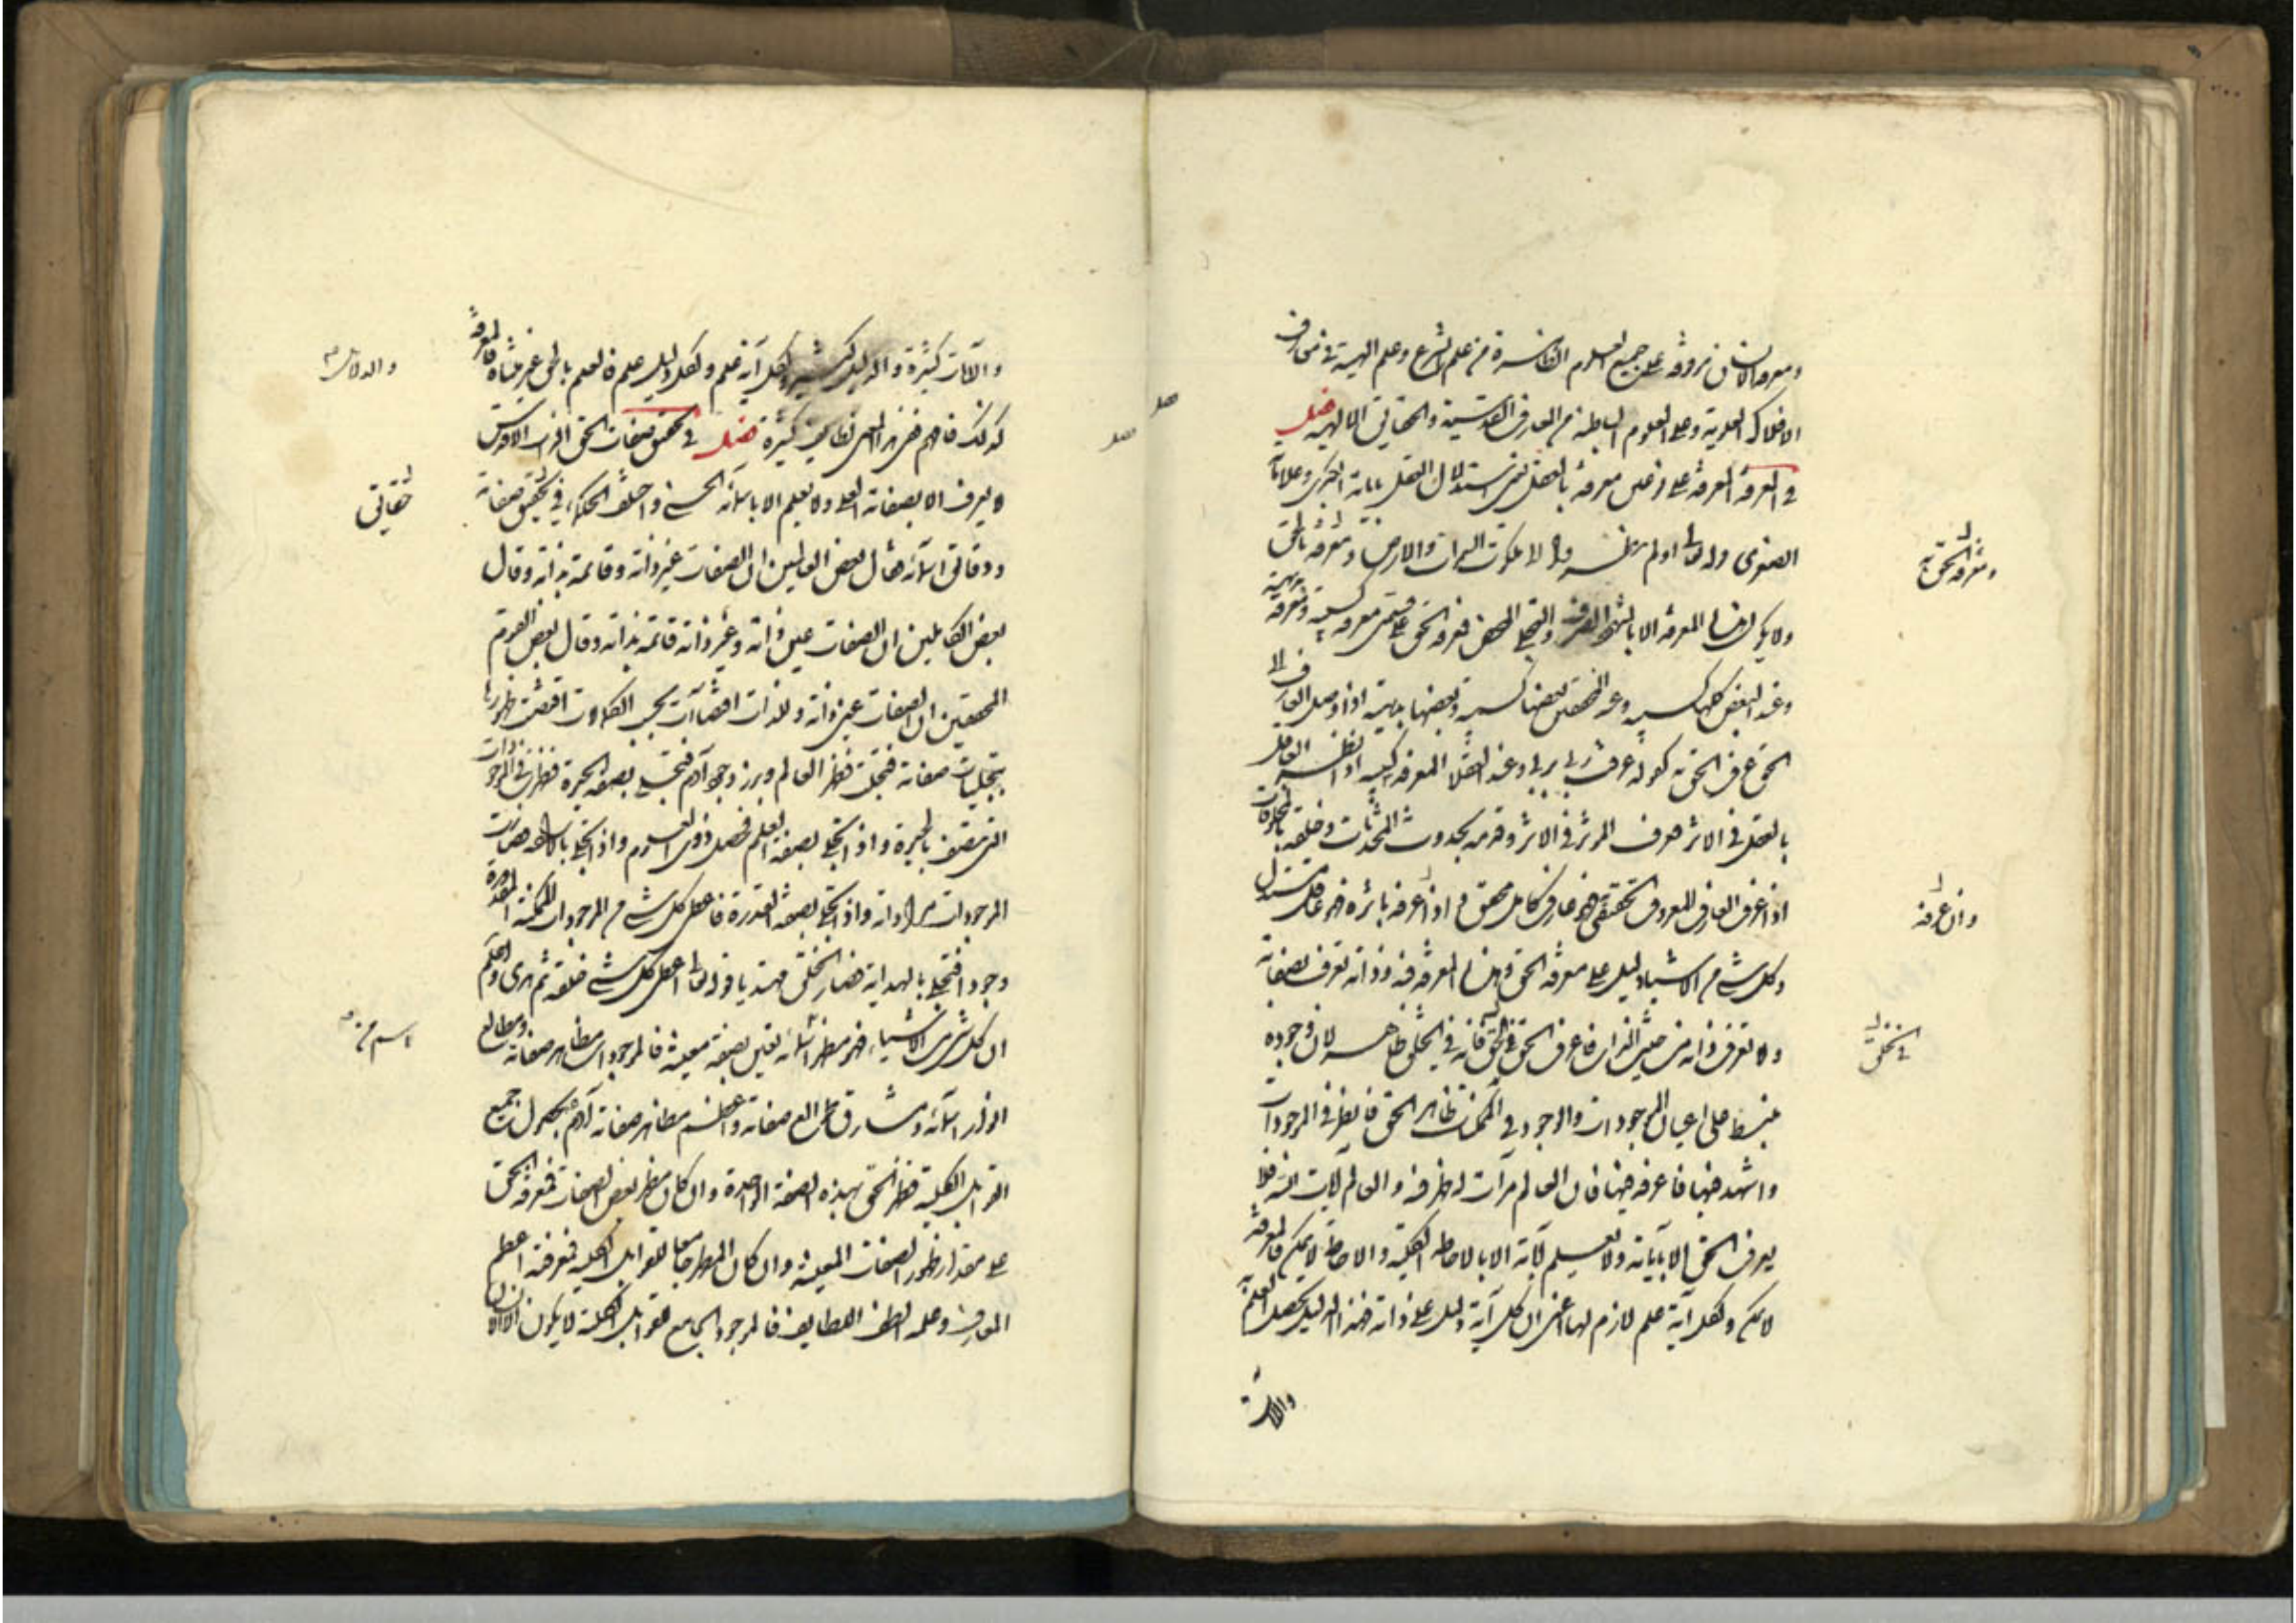 ومعرفة الانسان موقوفة على جميع العلوم الظاهرة من علم الشرع وعلم الهيئة في معارف
الافلاك العلوية وعلى العلوم الباطنة من المعارف القدسية والحقايق الالهية فصل
في المعرفة المعرفة على نوعين معرفة بالعقل يعني استدلال العقل باياته الكبرى وعلاماته
الصغرى وله تعالى اولم ينظروا الا ملكوت السموات والارض ومعرفة بالحق
ولا يمكن هذه المعرفة الا بالشهود الصرف والتجلي المحض فمعرفة الحق على قسمين معرفة كسبية ومعرفة بديهية
وعند البعض كلها كسبية وعند المحققين بعضها كسبية وبعضها بديهية اذا وصل العارف الى
الحق عرف الحق به كقوله عرفت ربي بربي وعند العقلا المعرفة كسبية اذا نظر العاقل
بالعقل في الاثر عرف المؤثر في الاثر وقدمه بحدوث المحدثات وخلقه بالمخلوقات
اذا عرف العارف المعروف بتحقيقه فهو عارف كامل محقق واذا عرفه باثره فهو عاقل مستدل
وكل شيء من الاشياء دليل على معرفة الحق وهذه المعرفة فيه وذاته تعرف بصفاته
ولا تعرف ذاته من حيث الذات فاعرف الحق في الخلق فانه في الخلق ظاهر لان وجوده
منبسط على اعيان الموجودات والوجود في الممكنات ظاهر الحق فانظر في الموجودات
واشهد فيها فاعرفه فيها فان العالم مرآت له ظهر فيه والعالم آيات الله فلا
يعرف الحق الا بآياته ولا تعلم آياته الا بالاحاطة الكلية والاحاطة لا يمكن فالمعرفة
لا يمكن ولكل آية علم لازم لها اعني ان كل آية دليل على ذاته فهذا الدليل يحصل العلم به
والآيات
ومعرفة الحق به
وان عرفه
في الخلق
والآيات كثيرة والدليل كثير ولكل آية علم ولكل دليل علم فالعلم بالحق غير متناه فالمعرفة
كذلك فافهم ففي هذا المعنى لطايف كثيرة فصل في تحقيق صفات الحق الذات الاقدس
لا يعرف الا بصفاته العلى ولا يعلم الا باسمائه الحسنى واختلف الحكماء في تحقيق صفاته
ودقائق اسمائه فقال بعض الفاضلين ان الصفات غير ذاته وقائمة بذاته وقال
بعض الكاملين ان الصفات عين ذاته وغير ذاته قائمة بذاته وقال بعض القوم
المحققين ان الصفات عين ذاته وللذات اقتضاآت بحسب الكمالات اقتضت ظهورها
بتجليات صفاته فتجلت فظهر العالم وبرز وجود آدم فتجلى بصفة الحيوة فظهرت في الموجودات
التي تتصف بالحيوة واذا تجلى بصفة العلم فحصل ذوي العلوم واذا تجلى بالارادة فصارت
الموجودات مراداته واذا تجلى بصفة القدرة فاعطى كل شيء من الموجودات الممكنة المقدورة
وجودا فتجلى بالهداية فصار الخلق مهتديا قوله تعالى اعطى كل شيء خلقه ثم هدى واعلم
ان كل شيء من الاشياء فهو مظهر اسمائه تعين بصفة معينة فالموجودات مظاهر صفاته ومطالع
انوار اسمائه ومشارق طوالع صفاته واعظم مظاهر صفاته آدم بحصول جميع
القوابل الكلية فظهر الحق بهذه الصفة الواحدة وان كان مظهر بعض الصفات فمعرفة الحق
على مقدار ظهور الصفات المعينة وان كان المظهر جامعا للقوابل الكلية فمعرفته اعظم
المعارف وعلمه الطف اللطايف فالموجود الجامع للقوابل الكلية لا يكون الا الانسان
حقايق